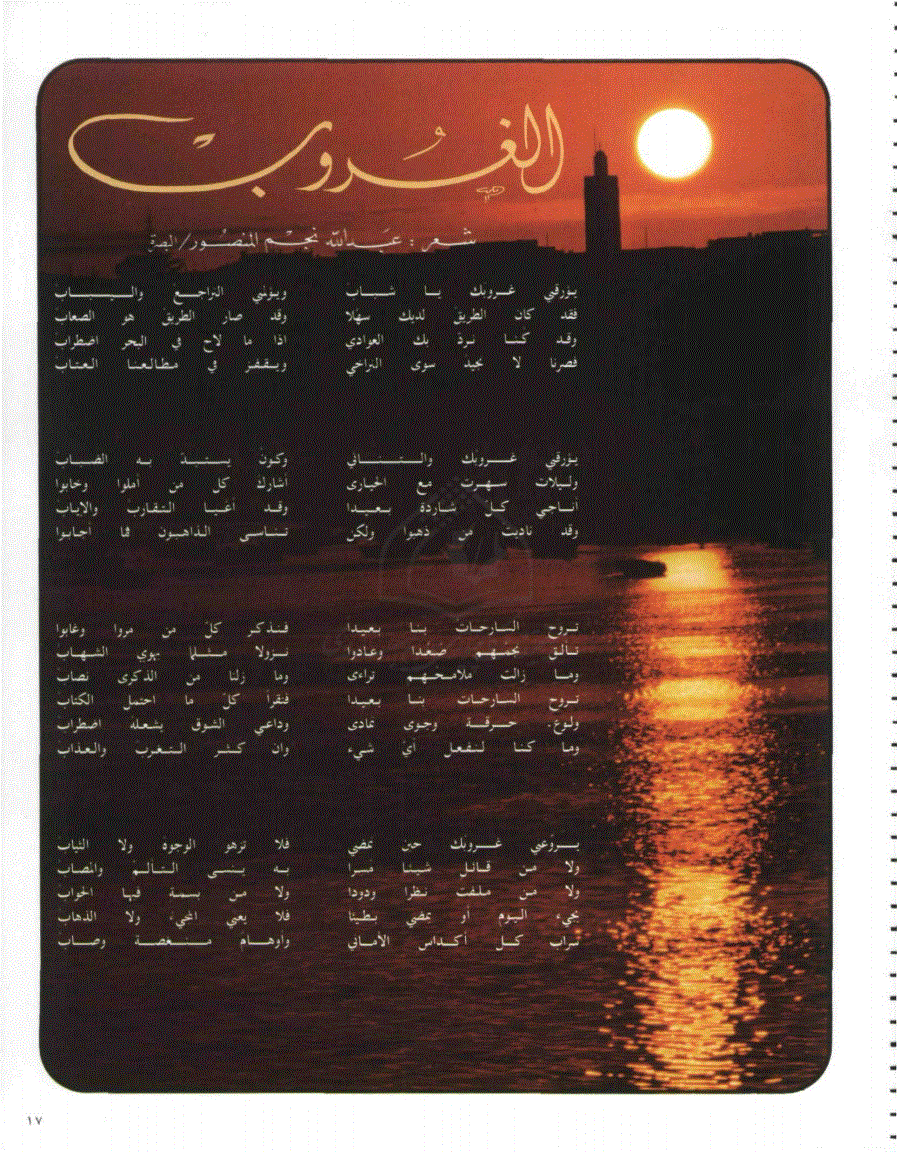 الغُروب
شعر : عبدالله نجم المنصور/
يؤرقني غروبك يا شباب ويؤلمني التراجع واليباب
فقد كان الطريق لديك سهلا وقد صار الطريق هو الصعاب
وقد كنا نرد بك العوادي اذا ما لاح في البحر اضطراب
فصرنا لا نجيد سوى التراخي ويقفز في مطالعنا العتاب
يؤرقني غروبك والتنائي وكون يستبد به الضباب
وليلات سهرت مع الحيارى أشارك كل من أملوا وخابوا
أناجي كل شاردة بعيدا وقد أعيا التقارب والاياب
وقد ناديت من ذهبوا ولكن تناسى الذاهبون فما أجابوا
تروح السارحات بنا بعيدا فنذكر كل من مروا وغابوا
تألق نجمهم صعدا وعادوا نزولا مثلما يهوي الشهاب
وما زالت ملامحهم تراءى وما زلنا من الذكرى نصاب
تروح السارحات بنا بعيدا فنقرأ كل ما احتمل الكتاب
ولوع حرقة وجوى تمادى وداعي الشوق يشعله اضطراب
وما كنا لنفعل أيّ شيء وان كثر التغرب والعذاب
يروّعني غروبك حين تمضي فلا تزهو الوجوه ولا الثياب
ولا من قائل شيئا مسرا به ينسى التألم والمصاب
ولا من ملفت نظرا ودودا ولا من بسمة فيها الجواب
يجيء اليوم أو يمضي بطيئا فلا يعني المجيء ولا الذهاب
تراب كل أكداس الأماني وأوهام منغصة وصاب
١٧